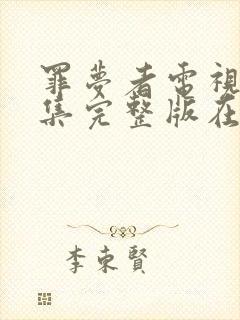 罪夢者電視
集完整版在
李東賢